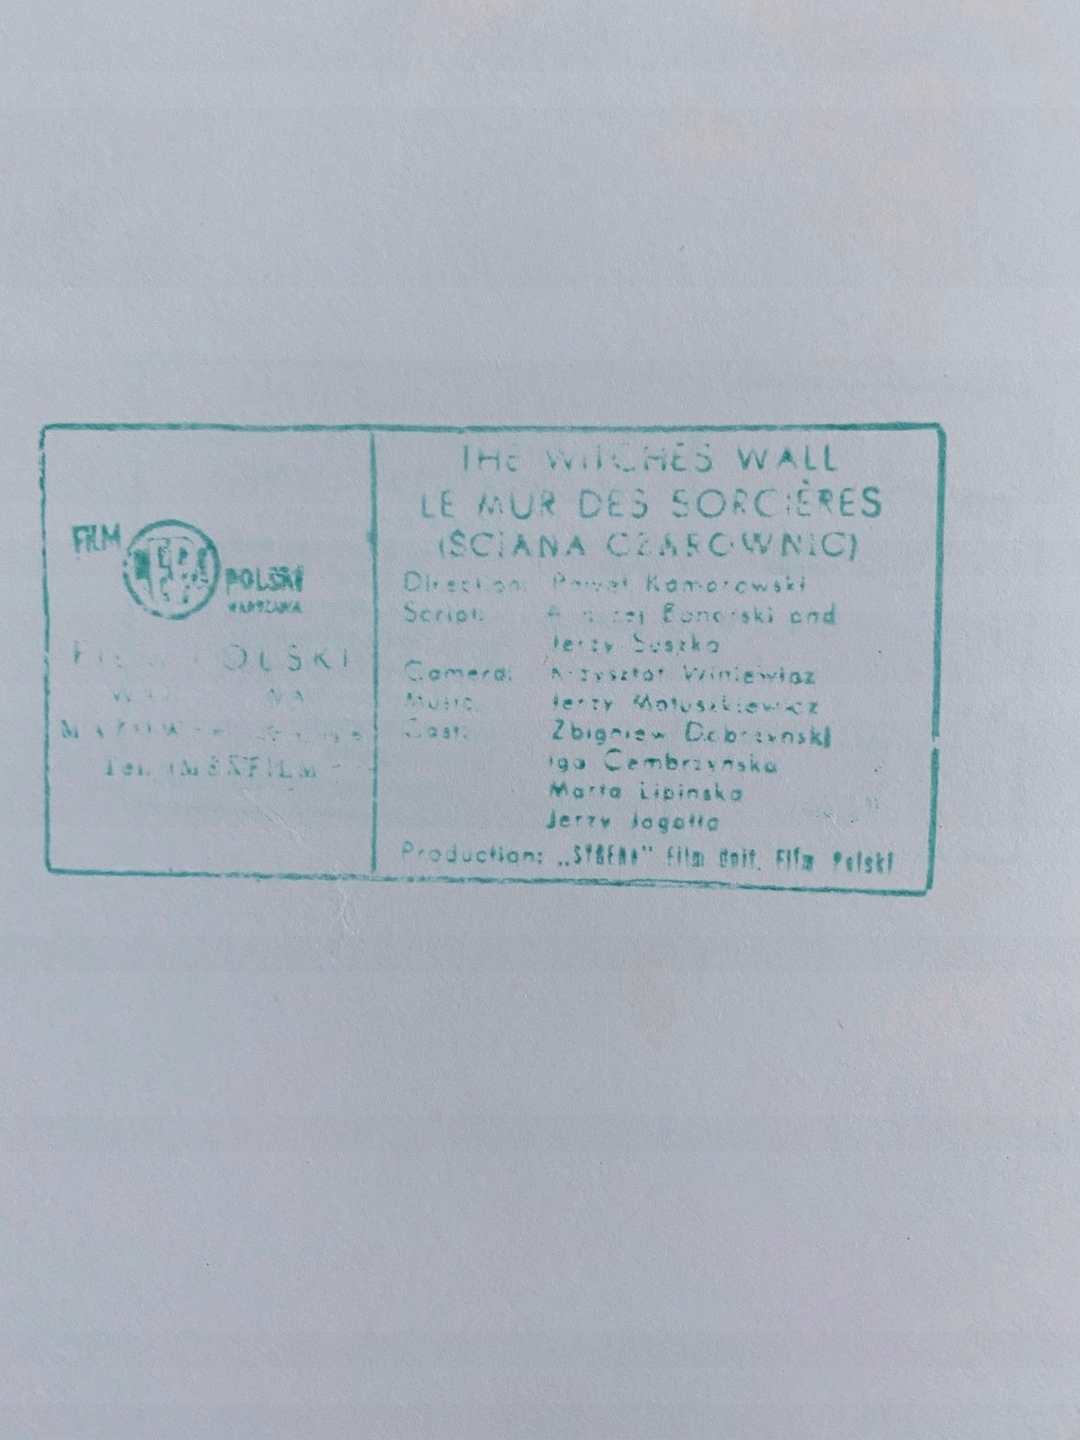 FILM
POLSKI
WARSZAWA
OLSKI
THE WITCHES WALL
LE MUR DES SORCIÈRES
(ŚCIANA CZAROWNIC)
Direction: Paweł Komorowski
Script: Andrzej Bonarski and
Jerzy Suszko
Camera: Krzysztof Winiewicz
Music: Jerzy Matuszkiewicz
Cast: Zbigniew Dobrzyński
Iga Cembrzyńska
Marta Lipińska
Jerzy Jogałła
Production: „SYRENA" Film Unit. Film Polski